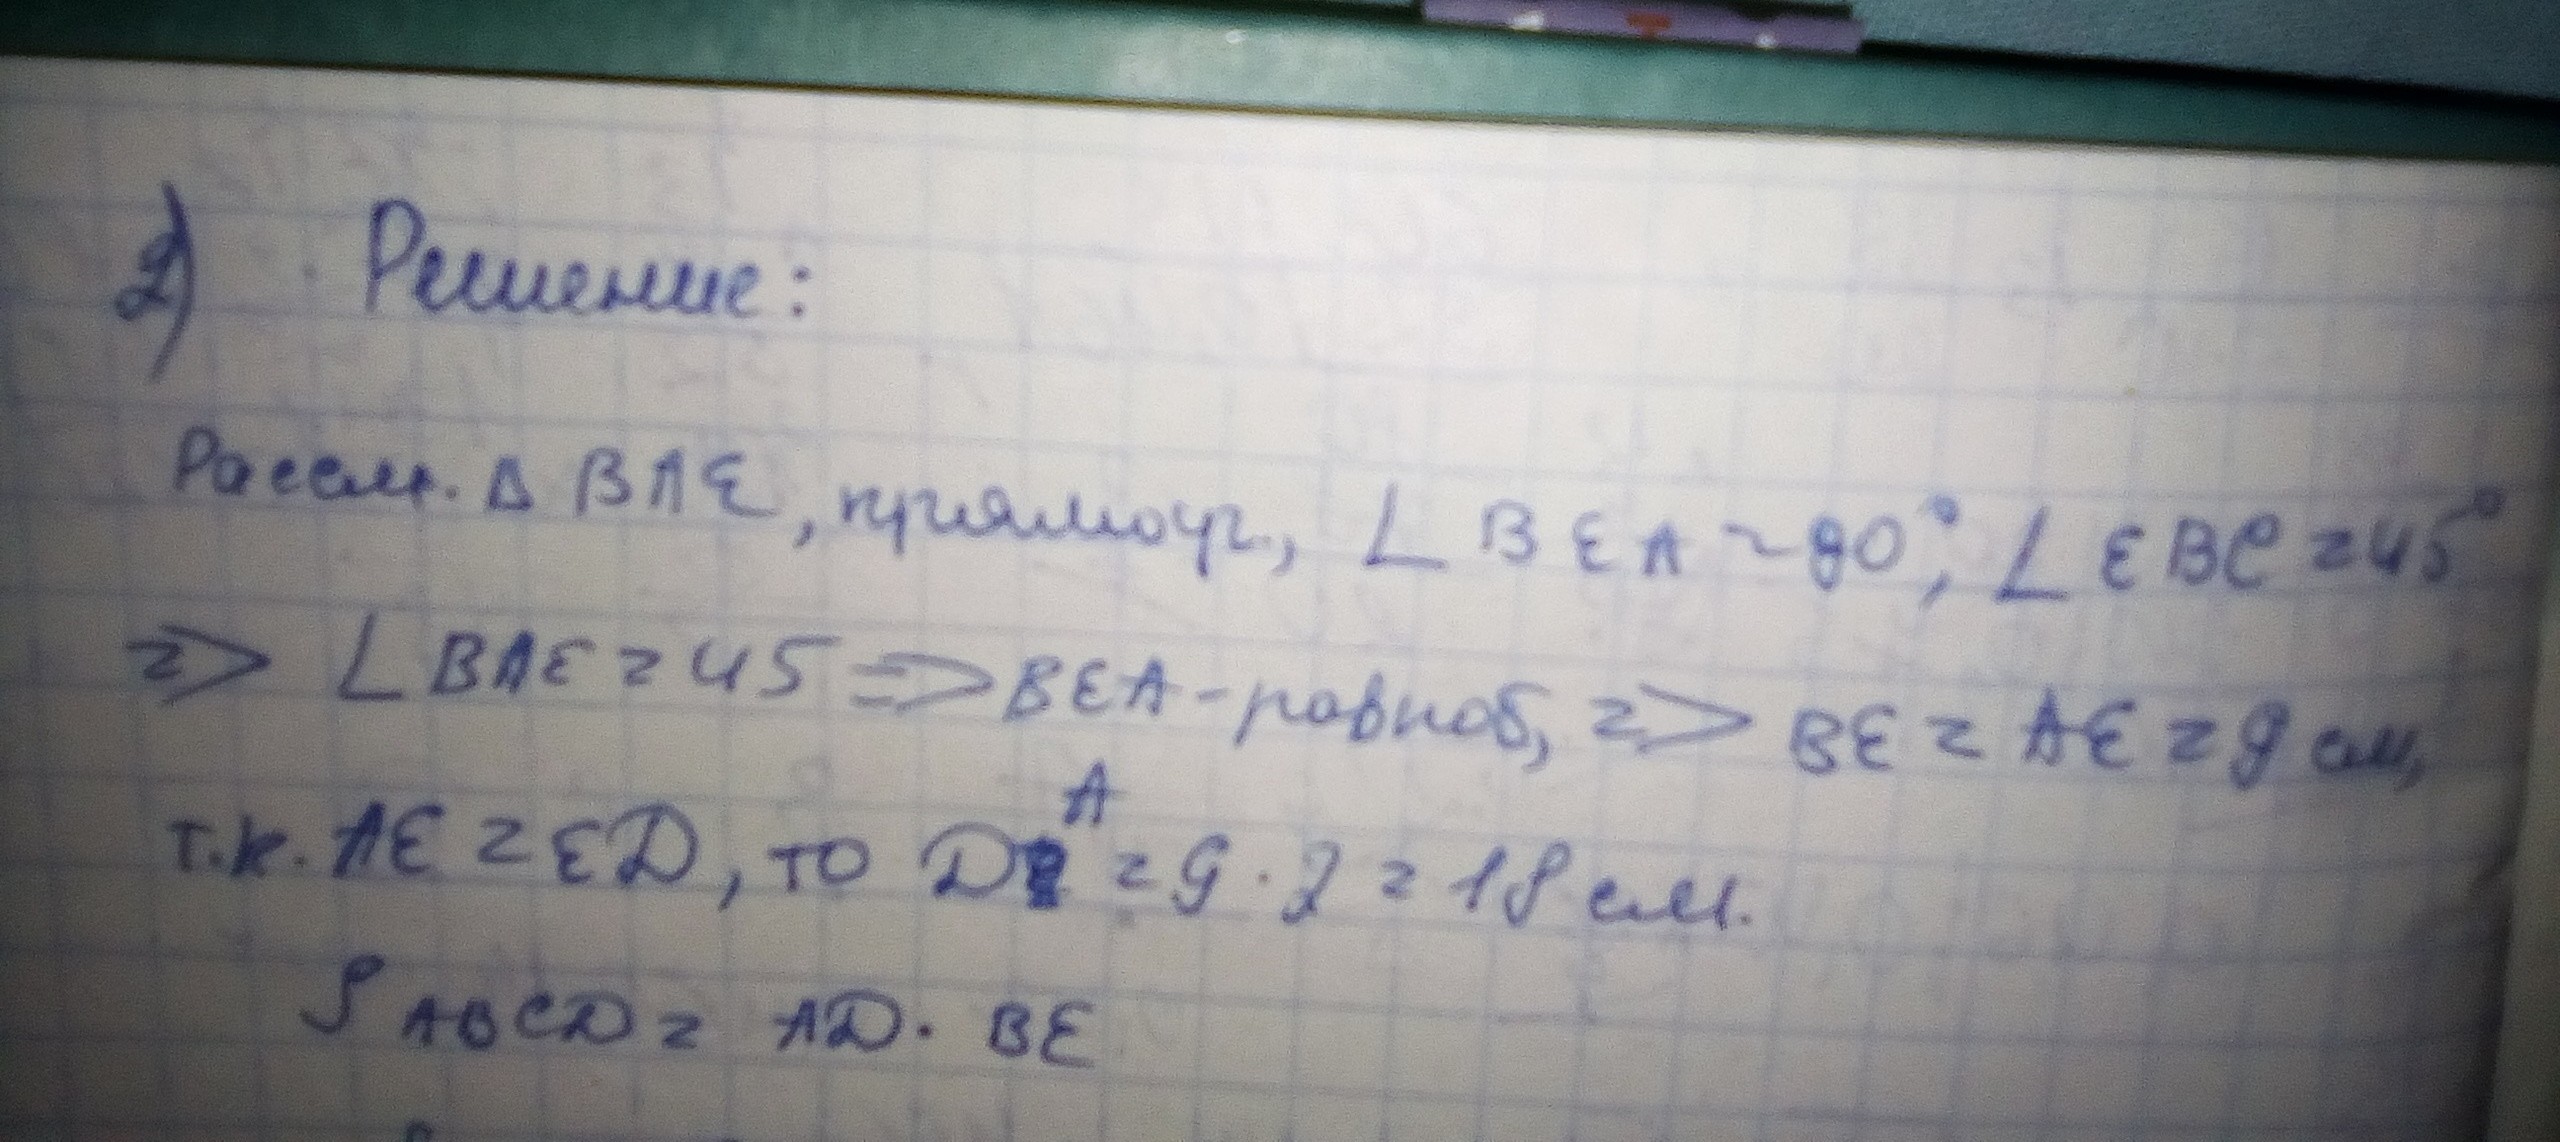 2) Решение:
Рассм. Δ BAE, прямоуг., ∠ BEA = 90°; ∠ EBC = 45°
=> ∠ BAE = 45 => BEA - равноб, => BE = AE = 9 см,
т.к. AE = ED, то DA = 9 · 2 = 18 см.
S ABCD = AD · BE